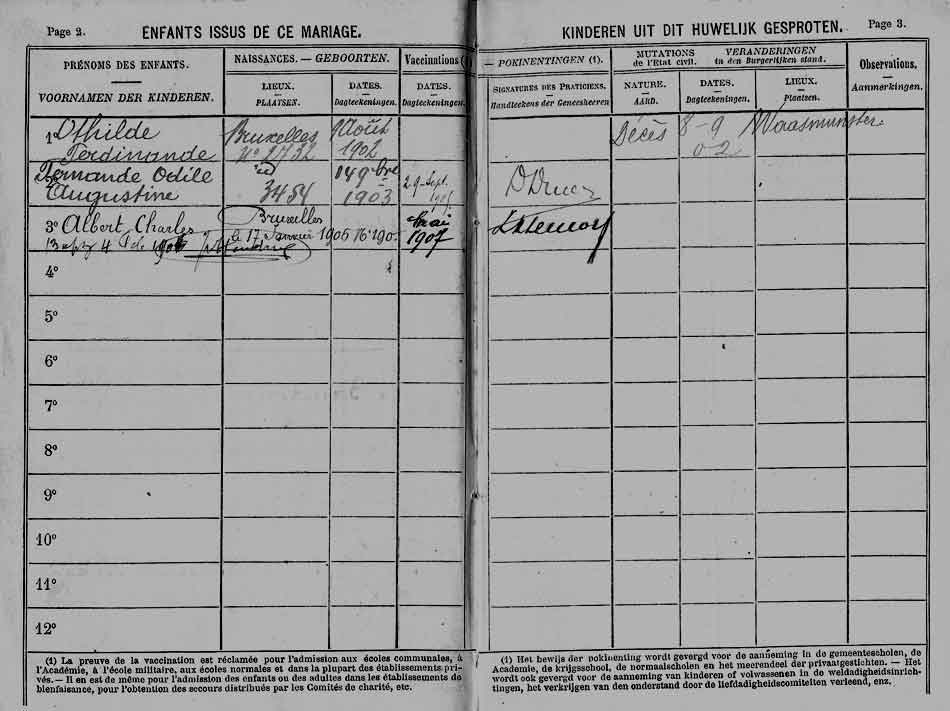 Page 2. ENFANTS ISSUS DE CE MARIAGE.
PRÉNOMS DES ENFANTS.
VOORNAMEN DER KINDEREN.
NAISSANCES. — GEBOORTEN.
LIEUX.
PLAATSEN.
DATES.
Dagteekeningen.
Vaccinations (
DATES.
Dagteekeningen.
1º Othilde
Ferdinande
Bruxelles
Nº 2732
1 Août
1902
Fernande Odile
Augustine
id
3454
14 9bre
1903
29 Sept.
3º Albert, Charles
Bruxelles
le 17 Janvier 1905
mai
1907
4º
5º
6º
7º
8º
9º
10º
11º
12º
(1) La preuve de la vaccination est réclamée pour l'admission aux écoles communales, à
l'Académie, à l'école militaire, aux écoles normales et dans la plupart des établissements pri-
vés. — Il en est de même pour l'admission des enfants ou des adultes dans les établissements de
bienfaisance, pour l'obtention des secours distribués par les Comités de charité, etc.
KINDEREN UIT DIT HUWELIJK GESPROTEN. Page 3.
— POKINENTINGEN (1).
SIGNATURES DES PRATICIENS.
Handteekens der Geneesheeren
MUTATIONS
de l'Etat civil.
VERANDERINGEN
in den Burgerlijken stand.
NATURE.
AARD.
DATES.
Dagteekeningen.
LIEUX.
Plaatsen.
Observations.
Aanmerkingen.
Décès 8-9 Waasmunster
02
(1) Het bewijs der pokinenting wordt gevergd voor de aanneming in de gemeentescholen, de
Academie, de krijgsschool, de normaalscholen en het meerendeel der privaatgestichten. — Het
wordt ook gevergd voor de aanneming van kinderen of volwassenen in de weldadigheidsinrich-
tingen, het verkrijgen van den onderstand door de liefdadigheidscomiteiten verleend, enz.